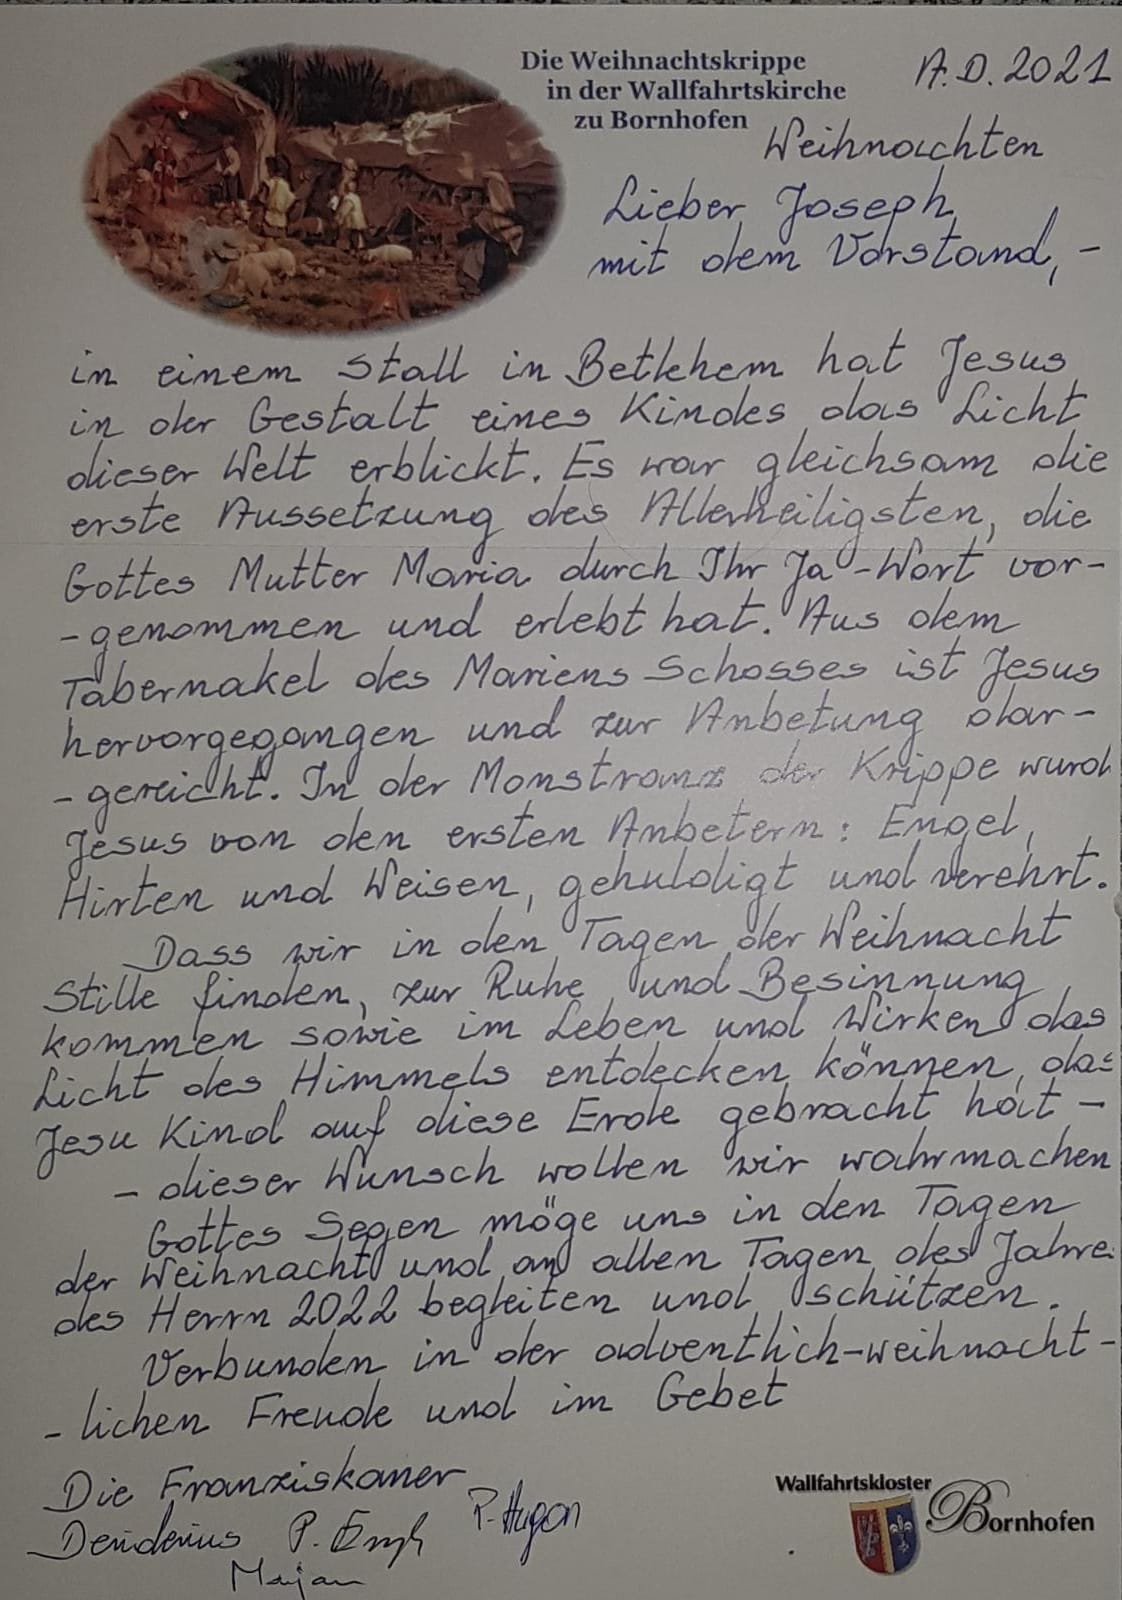 Die Weihnachtskrippe
in der Wallfahrtskirche
zu Bornhofen
A.D. 2021
Weihnachten
Lieber Joseph
mit dem Vorstand, -
in einem Stall in Betlehem hat Jesus
in der Gestalt eines Kindes das Licht
dieser Welt erblickt. Es war gleichsam die
erste Aussetzung des Allerheiligsten, die
Gottes Mutter Maria durch Ihr Ja-Wort vor-
-genommen und erlebt hat. Aus dem
Tabernakel des Mariens Schosses ist Jesus
hervorgegangen und zur Anbetung dar-
-gereicht. In der Monstranz der Krippe wurd
Jesus von den ersten Anbetern: Engel,
Hirten und Weisen, gehuldigt und verehrt.
Dass wir in den Tagen der Weihnacht
Stille finden, zur Ruhe und Besinnung
kommen sowie im Leben und Wirken das
Licht des Himmels entdecken können, das
Jesu Kind auf diese Erde gebracht hat -
- dieser Wunsch wollen wir wahrmachen
Gottes Segen möge uns in den Tagen
der Weihnacht und an allen Tagen des Jahre
des Herrn 2022 begleiten und schützen.
Verbunden in der adventlich-weihnacht-
-lichen Freude und im Gebet
Die Franziskaner
P.
P.
Wallfahrtskloster
Bornhofen